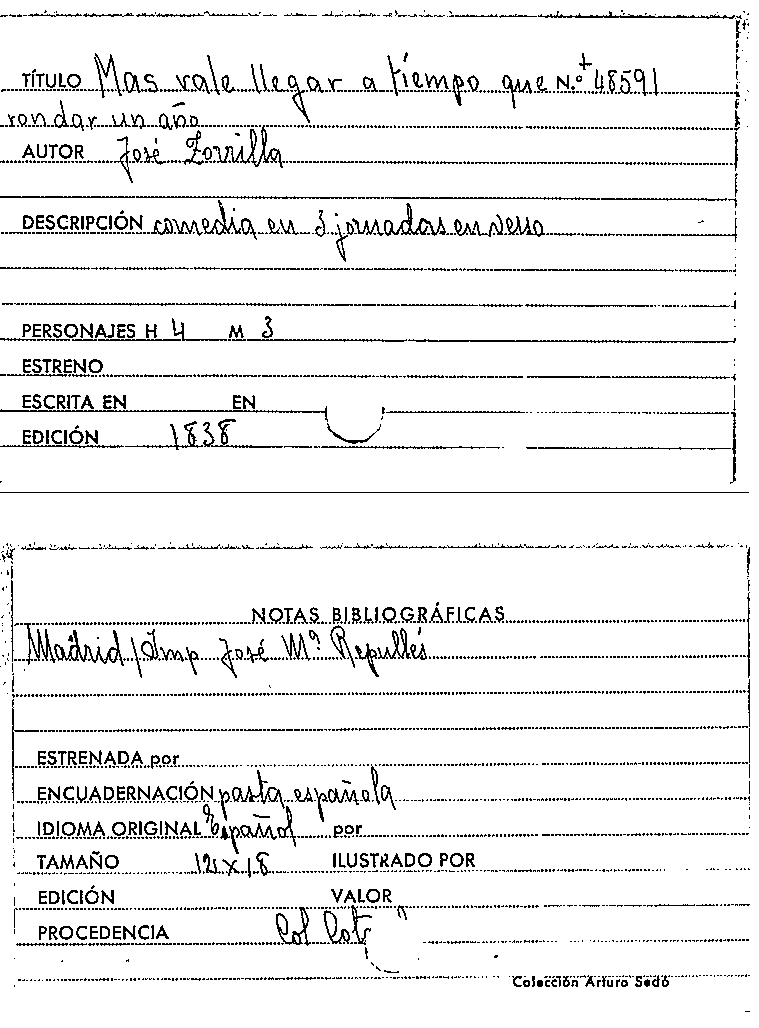 TÍTULO Mas vale llegar a tiempo que N.º 48591
rondar un año
AUTOR José Zorrilla
DESCRIPCIÓN comedia en 3 jornadas en verso
PERSONAJES H 4 M 3
ESTRENO
ESCRITA EN EN
EDICIÓN 1838
NOTAS BIBLIOGRÁFICAS
Madrid / Imp José Mª Repullés
ESTRENADA por
ENCUADERNACIÓN pasta española
IDIOMA ORIGINAL Español por
TAMAÑO ILUSTRADO POR
EDICIÓN VALOR
PROCEDENCIA Col
Colección Arturo Sedó